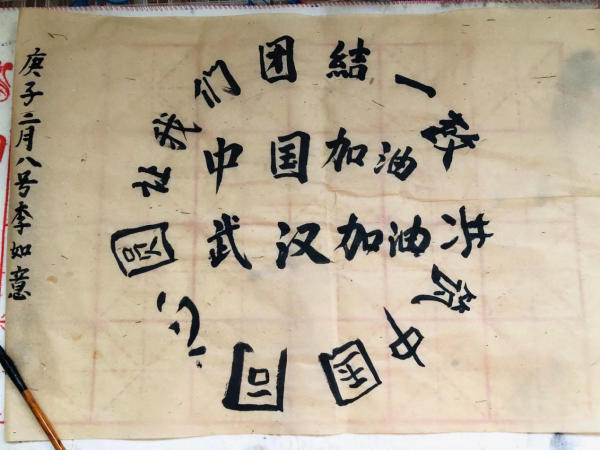 让我们团結一致共筑中国同心圆
中国加油
武汉加油
庚子二月八号李如意